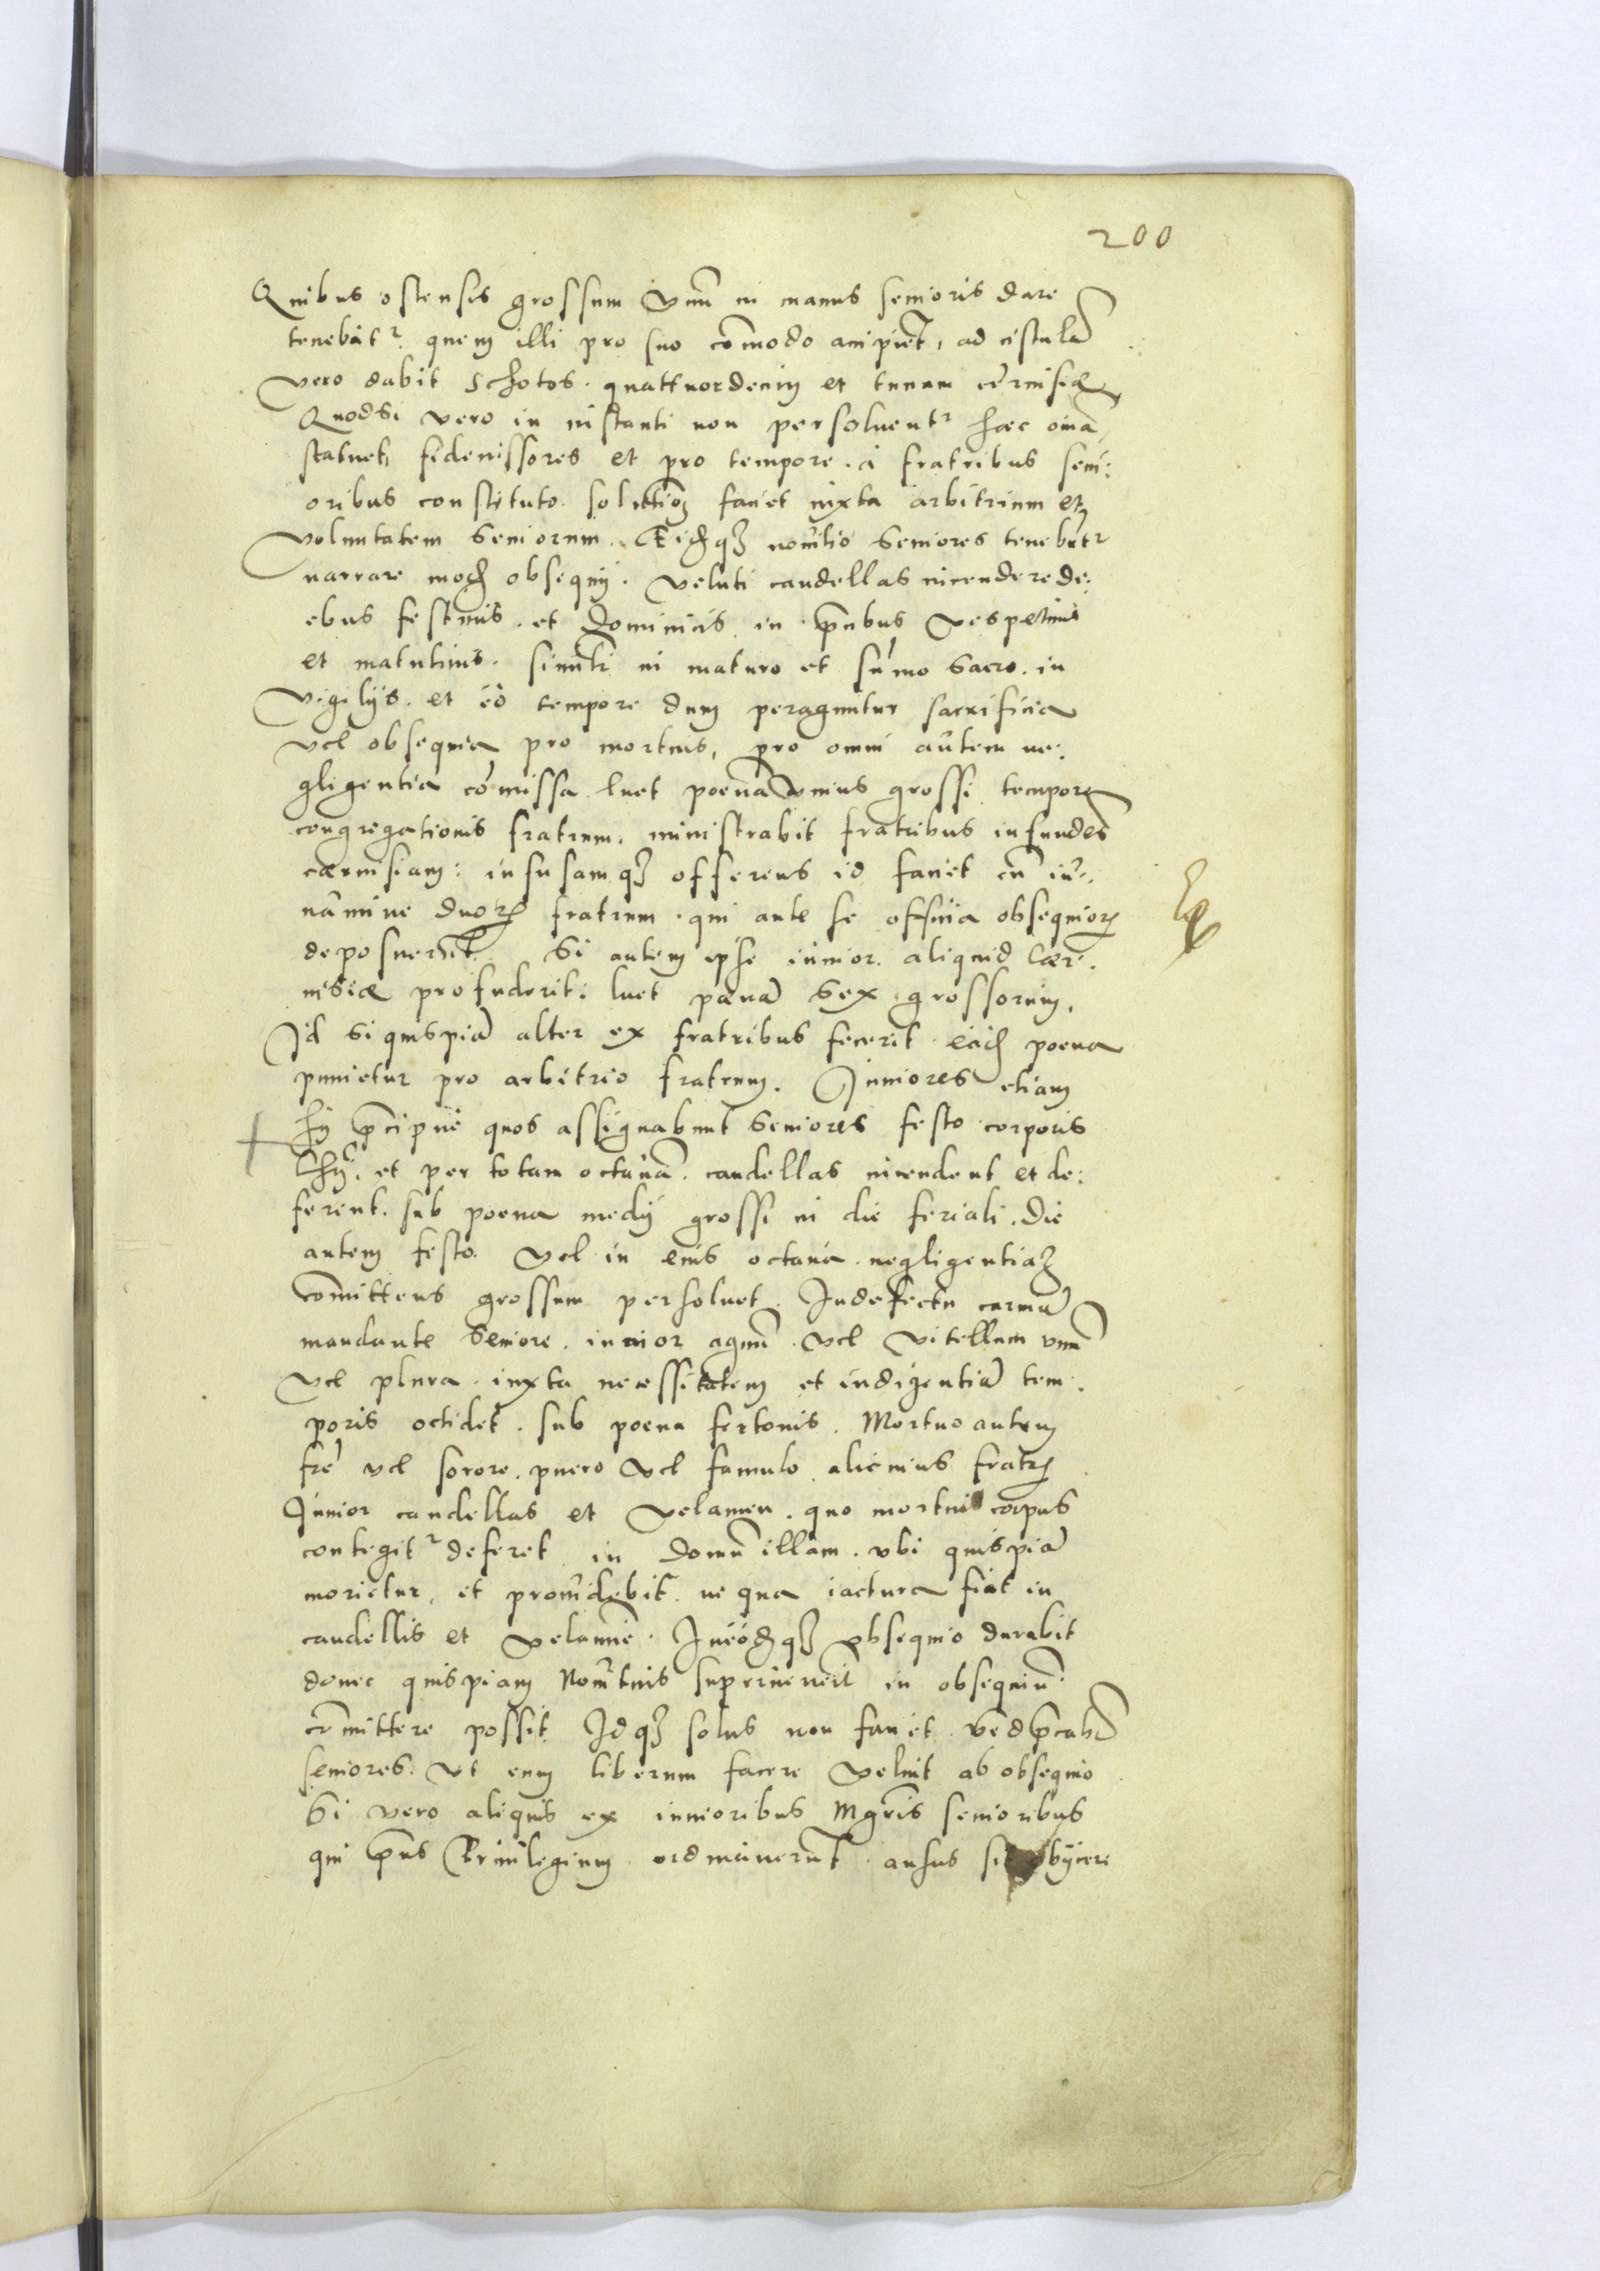 200
Quibus ostensis grossum vnu̅ in manus senioris dare
tenebit͛ quem illi pro suo co̅modo accipie̅t, ad cistula̅
vero dabit schotos quattuordecim et tunam cervisiæ
Quodsi vero in instanti non persoluent͛ hæc o̅ia̅
statuet fideiussores et pro tempore à fratribus seni:
oribus constituto solutio̅ꝫ faciet iuxta arbitrium et
voluntatem Seniorum. Seniores tenebu̅t͛
narrare mod̅ obsequij. veluti candellas incendere de:
ebus festiuis et Dominicis in p̅cibus vespe̅tinis
et matutinis. in maturo et su̅mo Sacro. in
vigilijs. et eo tempore dum peraguntur sacrificia
vel obsequia pro mortuis, pro omni autem ne:
gligentia co̅missa luet poena̅ vnius grossi tempore
congregationis fratrum. ministrabit fratribus infundes̅
cæruisiam: infusamqꝫ offerens id faciet cu̅ iu:
uamine duorꝫ fratrum qui ante se officia obsequiorꝫ
deposueru̅t. Si autem ipse iunior aliquid cær:
uisiæ profuderit: luet pœna̅ sex grossorum.
Id si quispia̅ alter ex fratribus fecerit ead̅ poena
punietur pro arbitrio fratrum. Juniores etiam
hij p̅cipuè quos assignabunt Seniores festo corporis
Chrj̅. et per totam octaua̅ candellas incendent et de:
ferent. sub poena medij grossi in die feriali. Die
autem festo vel in eius octaua negligentiaꝫ
co̅mittens grossum persoluet. In defectu carniu̅
mandante Seniore iunior agnu̅ vel vitellum vnu̅
vel plura iuxta necessitatem et indigentia̅ tem:
poris occidet. sub poena fertonis. Mortuo autem
fr̅e vel sorore. puero vel famulo alicuius fratrꝫ
Junior candellas et velamen quo mortui corpus
contegit͛ deferet in domu̅ illam vbi quispia̅
morietur, et prouidebit ne qua iactura fiat in
candellis et velami̅e. In eod̅qꝫ obsequio durabit
donec quispiam superuenerit in obsequiu̅
co̅mittere possit. Idqꝫ solus non faciet
seniores. vt eum liberum facere velint ab obsequio
Si vero aliquis ex iunioribus Mgr̅is senioribus
qui p̅ns Priuilegium ordinaueru̅t ausus sit